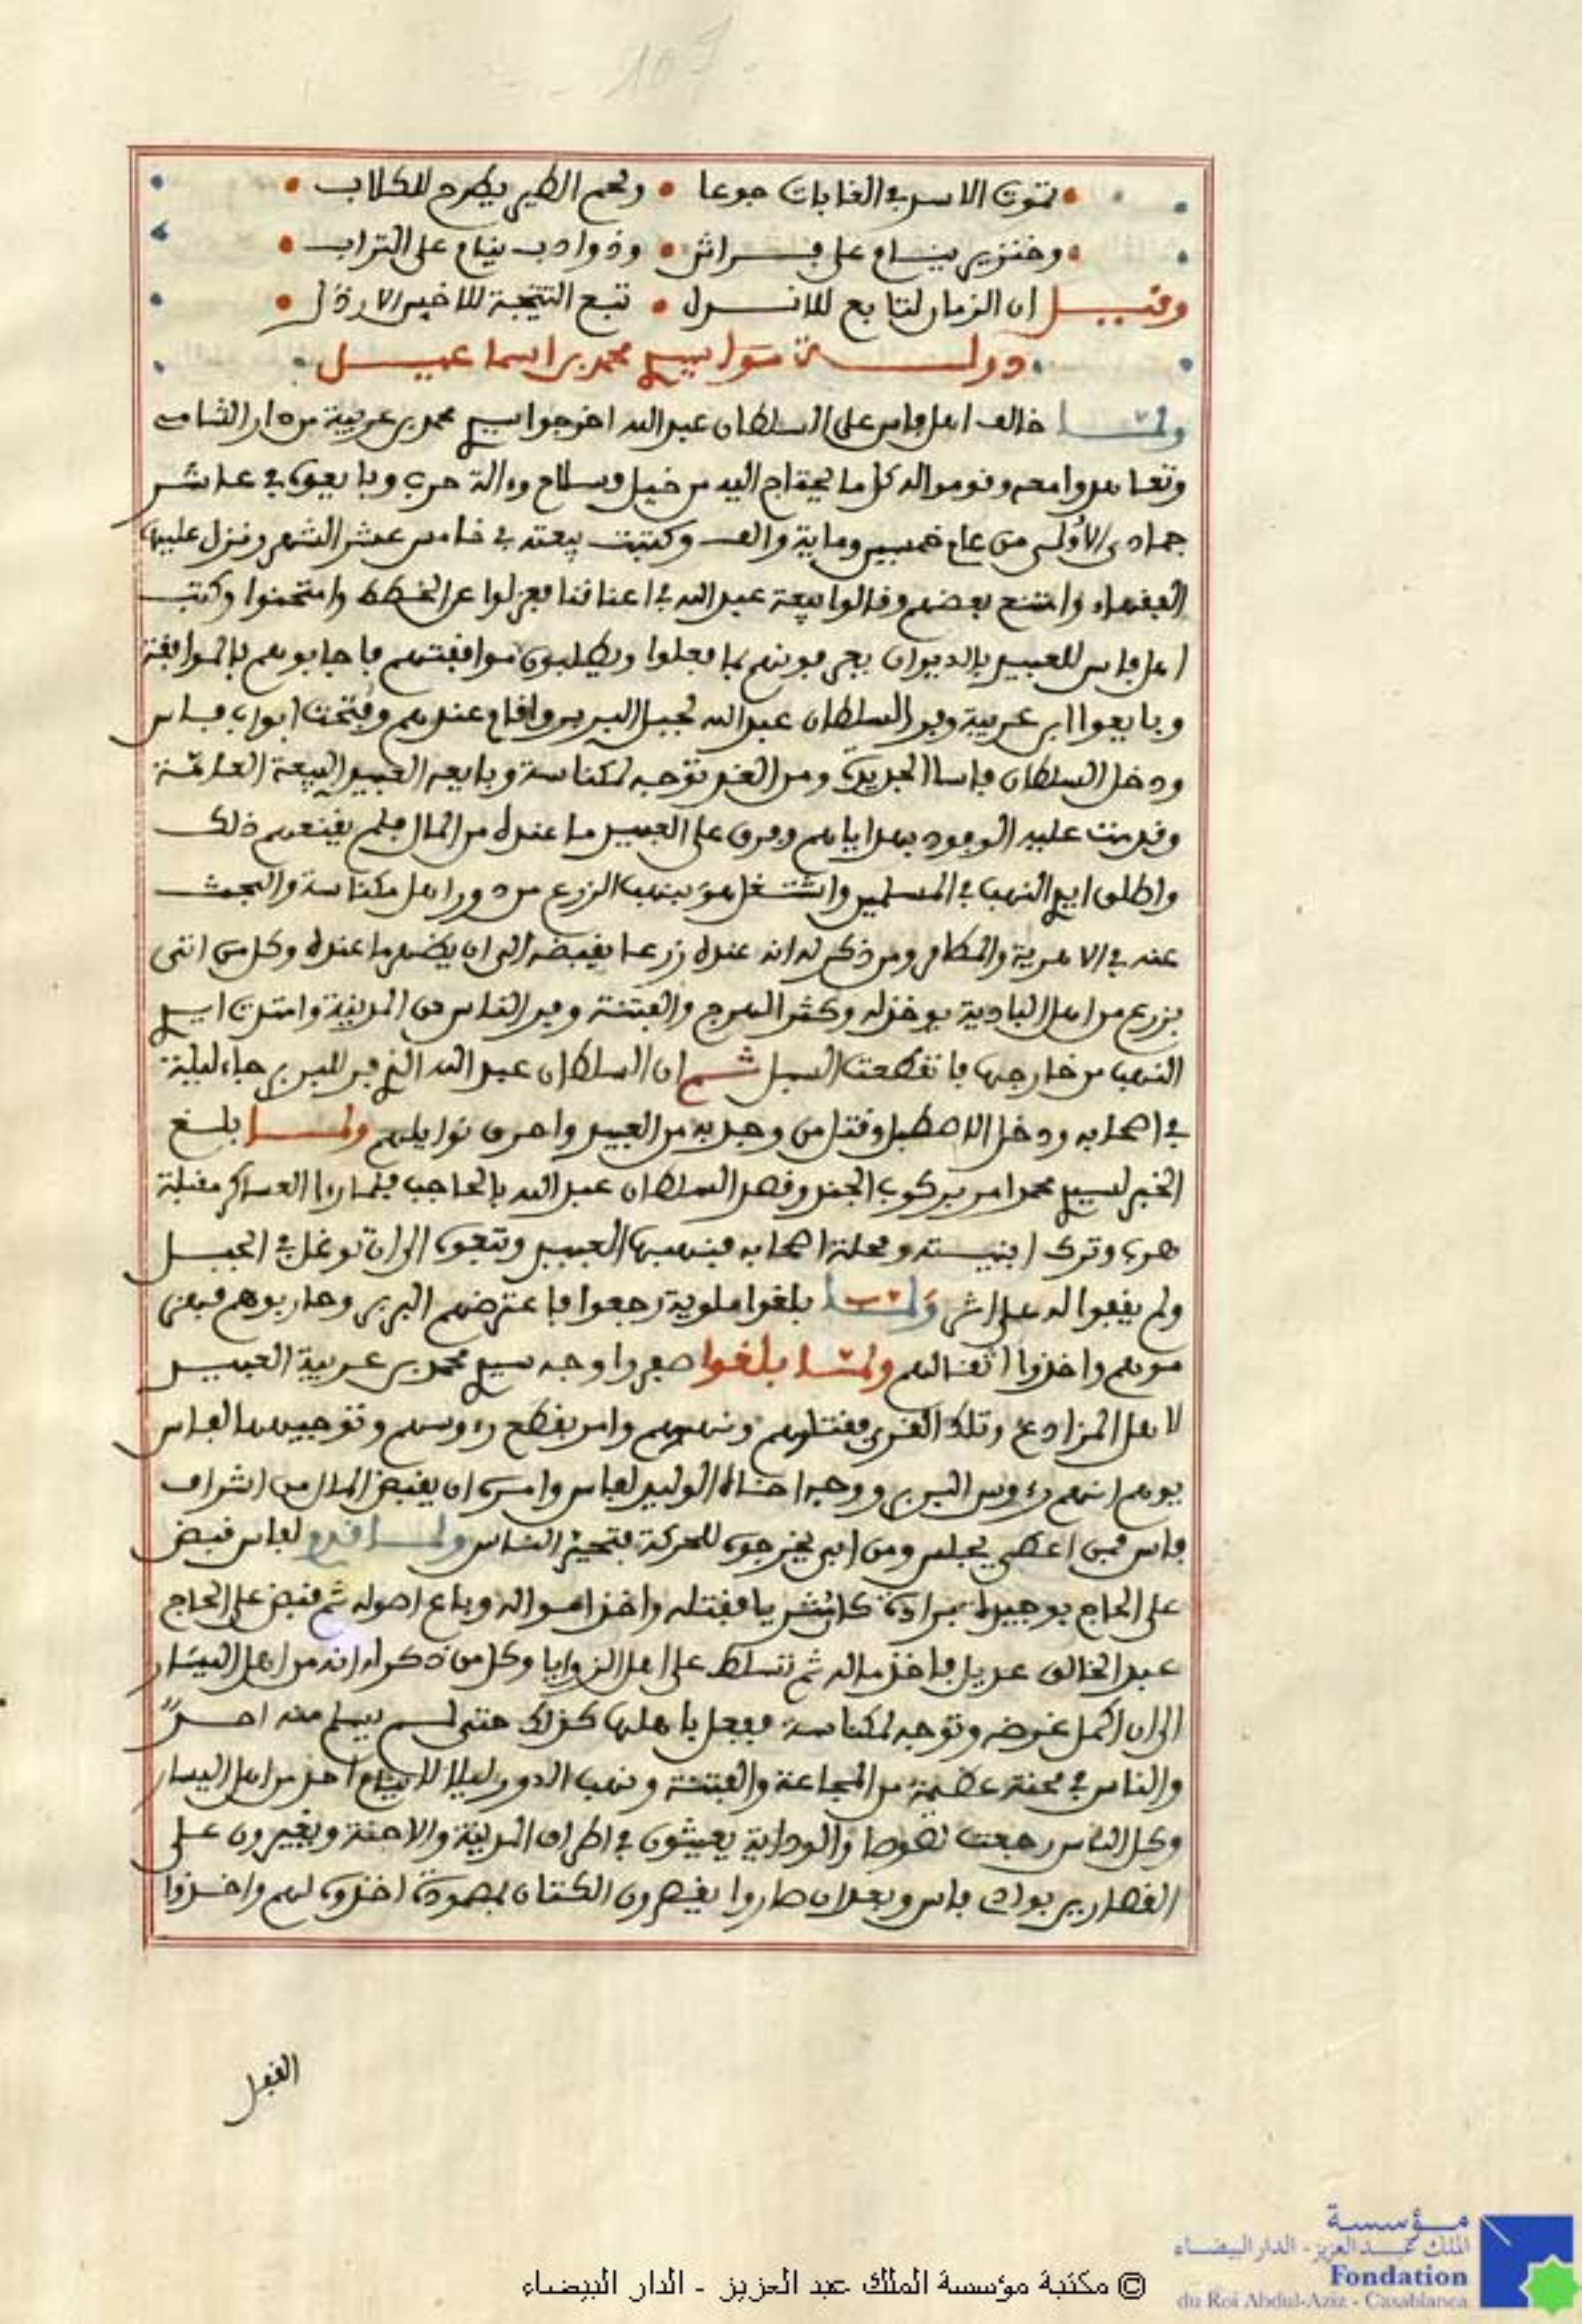 107
تموت الاسد في الغابات جوعا • ولحم الطير يطرح للكلاب
وخنزير ينام على فراش • وذو ادب ينام على التراب
وقيل ان الزمان لتابع للانذل • تبع النتيجة للاخس الارذل
دولة مولاي محمد بن اسماعيل
ولما خالف اهل فاس على السلطان عبد الله اخرجوا سيدي محمد بن عربية من دار الشامي
وتعاهدوا معه وقوموا له كل ما يحتاج اليه من خيل وسلاح وءالة حرب وبايعوه في عاشر
جمادى الاولى من عام خمسين وماية والف وكتبت بيعته في خامس عشر الشهر ونزل عليها
الفقهاء وامتنع بعضهم وقالوا بيعة عبد الله في اعناقنا فعزلوا عن الخطط وامتحنوا وكتب
اهل فاس للعبيد بالديوان يعرفونهم بما فعلوا ويطلبون موافقتهم فاجابوهم بالموافقة
وبايعوا ابن عربية وفر السلطان عبد الله لجبل البربر واقام عندهم وفتحت ابواب فاس
ودخل السلطان فاسا الجديد ومن الغد توجه لمكناسة وبايعه العبيد البيعة العامة
وقدمت عليه الوفود بهداياهم وفرق على العبيد ما عنده من المال فلم يقنعهم ذلك
واطلق ايدي النهب في المسلمين واشتغل هو بنهب الزرع من دور اهل مكناسة والبحث
عنه في الاهرية والمطامر ومن ذكر له انه عنده زرعا يقبضه الى ان يظهر ما عنده وكل من اتى
بزرع من اهل البادية يوخذ له وكثر الهرج والفتنة وفر الناس من المدينة وامتدت ايدي
النهب من خارجها فانقطعت السبل ثم ان السلطان عبد الله الذي فر للبربر جاء ليلة
في اصحابه ودخل الاصطبل وقتل من وجد به من العبيد واحرق نوايلهم ولما بلغ
الخبر لسيدي محمد امر بركوب الجند وقصد السلطان عبد الله بالحاجب فلما راوا العساكر مقبلة
هرب وترك ابنيته ومحلة اصحابه فنهبها العبيد وتبعوه الى ان توغل في الجبل
ولم يقفوا له على اثر ولما بلغوا ملوية رجعوا فاعترضهم البربر وحاربوهم فهزموهم
واخذوا اثقالهم ولما بلغوا صفروا وجه سيدي محمد بن عربية العبيد
لاهل المزادغ وتلك القرى فقتلوهم ونهبوهم وامر بقطع رءوسهم وتوجيهها لفاس
يوهم انهم رءوس البربر ووجه اخاه الوليد لفاس وامره ان يقبض المال من اشراف
فاس فمن اعطى يجلس ومن ابى يخرجوه للحركة فتحير الناس ولما قدم لفاس قبض
على الحاج بوجيدة برادة كان ثريا فقتله واخذ امواله وباع اصوله ثم قبض على الحاج
عبد الخالق عديل فاخذ ماله ثم تسلط على اهل الزوايا وكل من ذكر له انه من اهل اليسار
الى ان اكمل غرضه وتوجه لمكناسة ففعل باهلها كذلك حتى لم يسلم منه احد
والناس في محنة عظيمة من المجاعة والفتنة ونهب الدور ليلا لا ينام احد من اهل اليسار
وكل الناس رجعت لصوصا والودايا يعيثون في اطراف المدينة والاجنة ويغيرون على
القصارين بوادي فاس وبعد ان صاروا يقصرون الكتان بمصمودة اخذوه لهم واخذوا
الفيل
© مكتبة مؤسسة الملك عبد العزيز - الدار البيضاء
مؤسسة
الملك عبد العزيز - الدار البيضاء
Fondation
du Roi Abdul-Aziz - Casablanca